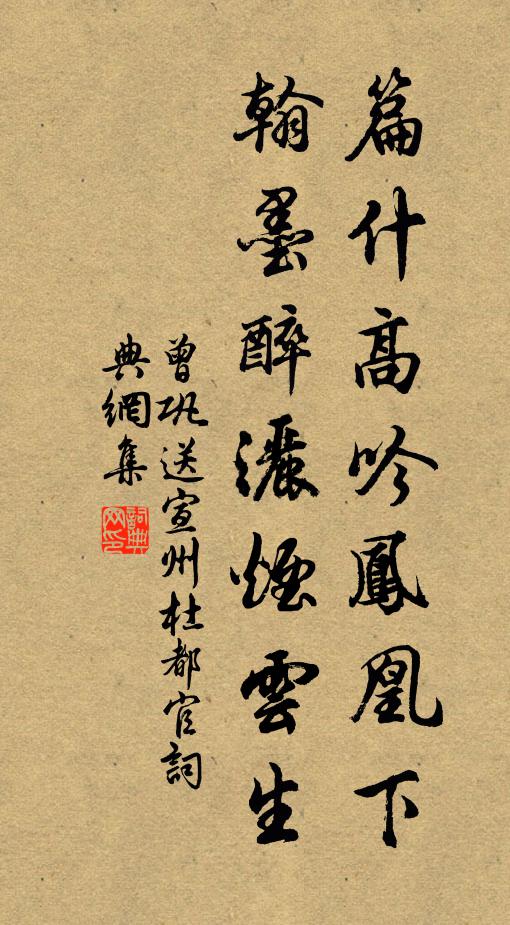 篇什高吟鳳凰下
翰墨醉灑煙雲生
曾巩送宣州杜都官詞
典網集
詞典
网印